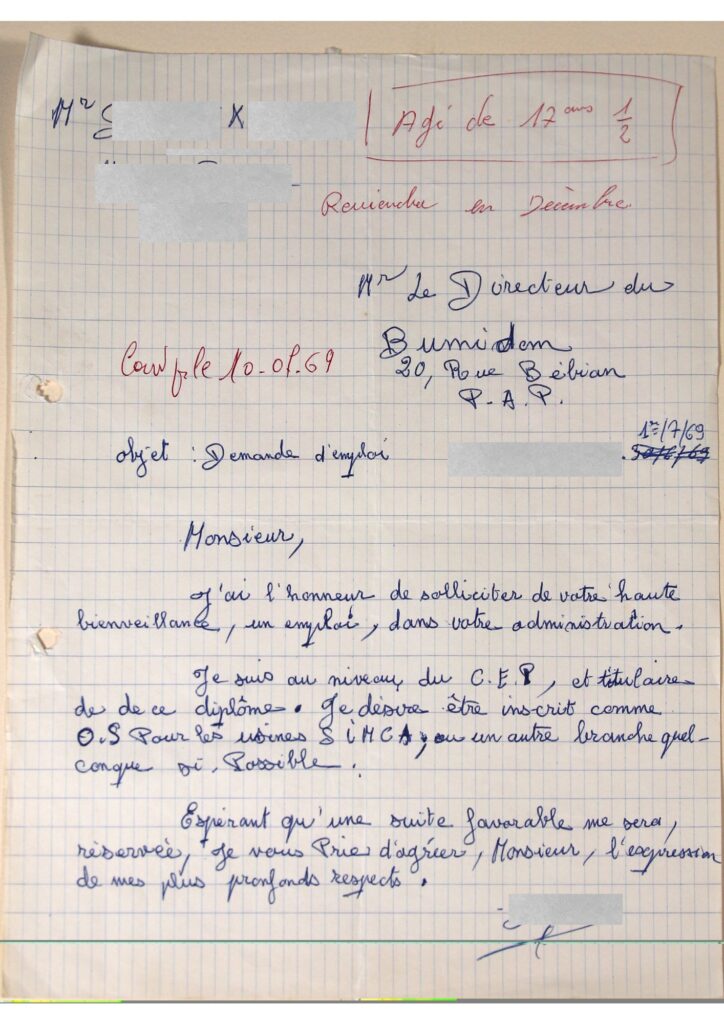 Mr X
Agé de 17 ans 1/2
Reviendra en Décembre
Mr Le Directeur du
Bumidom
20, Rue Bébian
P.A.P.
le 10-07-69
1er/7/69
objet : Demande d'emploi . 30/6/69
Monsieur,
J'ai l'honneur de solliciter de votre haute
bienveillance, un emploi, dans votre administration.
Je suis au niveau du C.E.P, et titulaire
de de ce diplôme. Je désire être inscrit comme
O.S Pour les usines SiMCA, ou un autre branche quel-
conque si Possible.
Espérant qu'une suite favorable me sera,
réservée, Je vous Prie d'agréer, Monsieur, l'expression
de mes plus profonds respects.